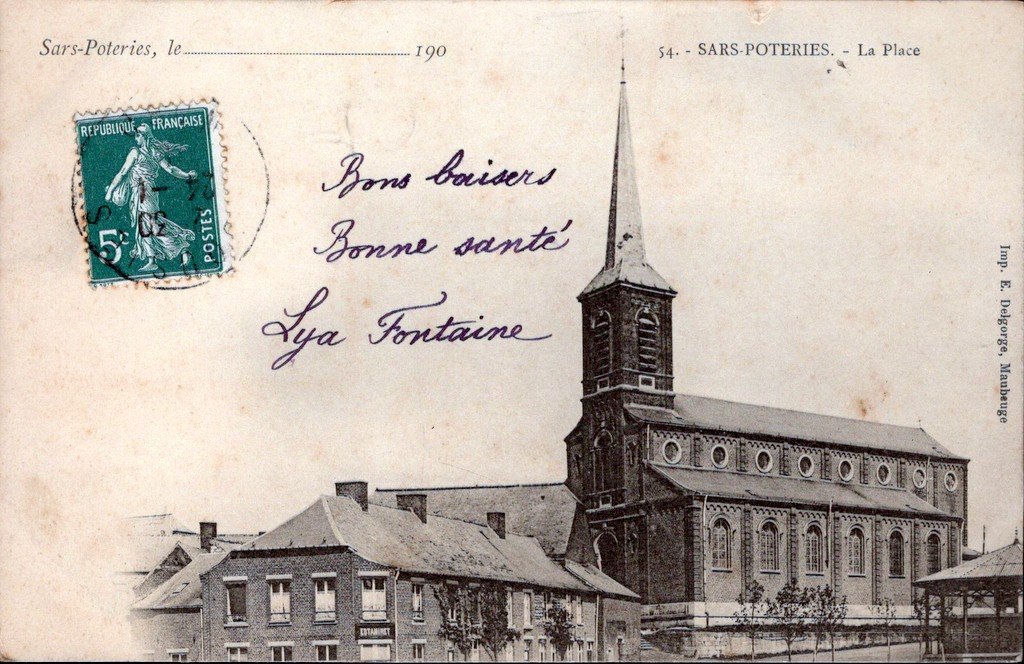 Sars-Poteries, le 190
54. - SARS-POTERIES. - La Place
RÉPUBLIQUE FRANÇAISE
5c
POSTES
Bons baisers
Bonne santé
Lya Fontaine
Imp. E. Delgorge, Maubeuge
ESTAMINET